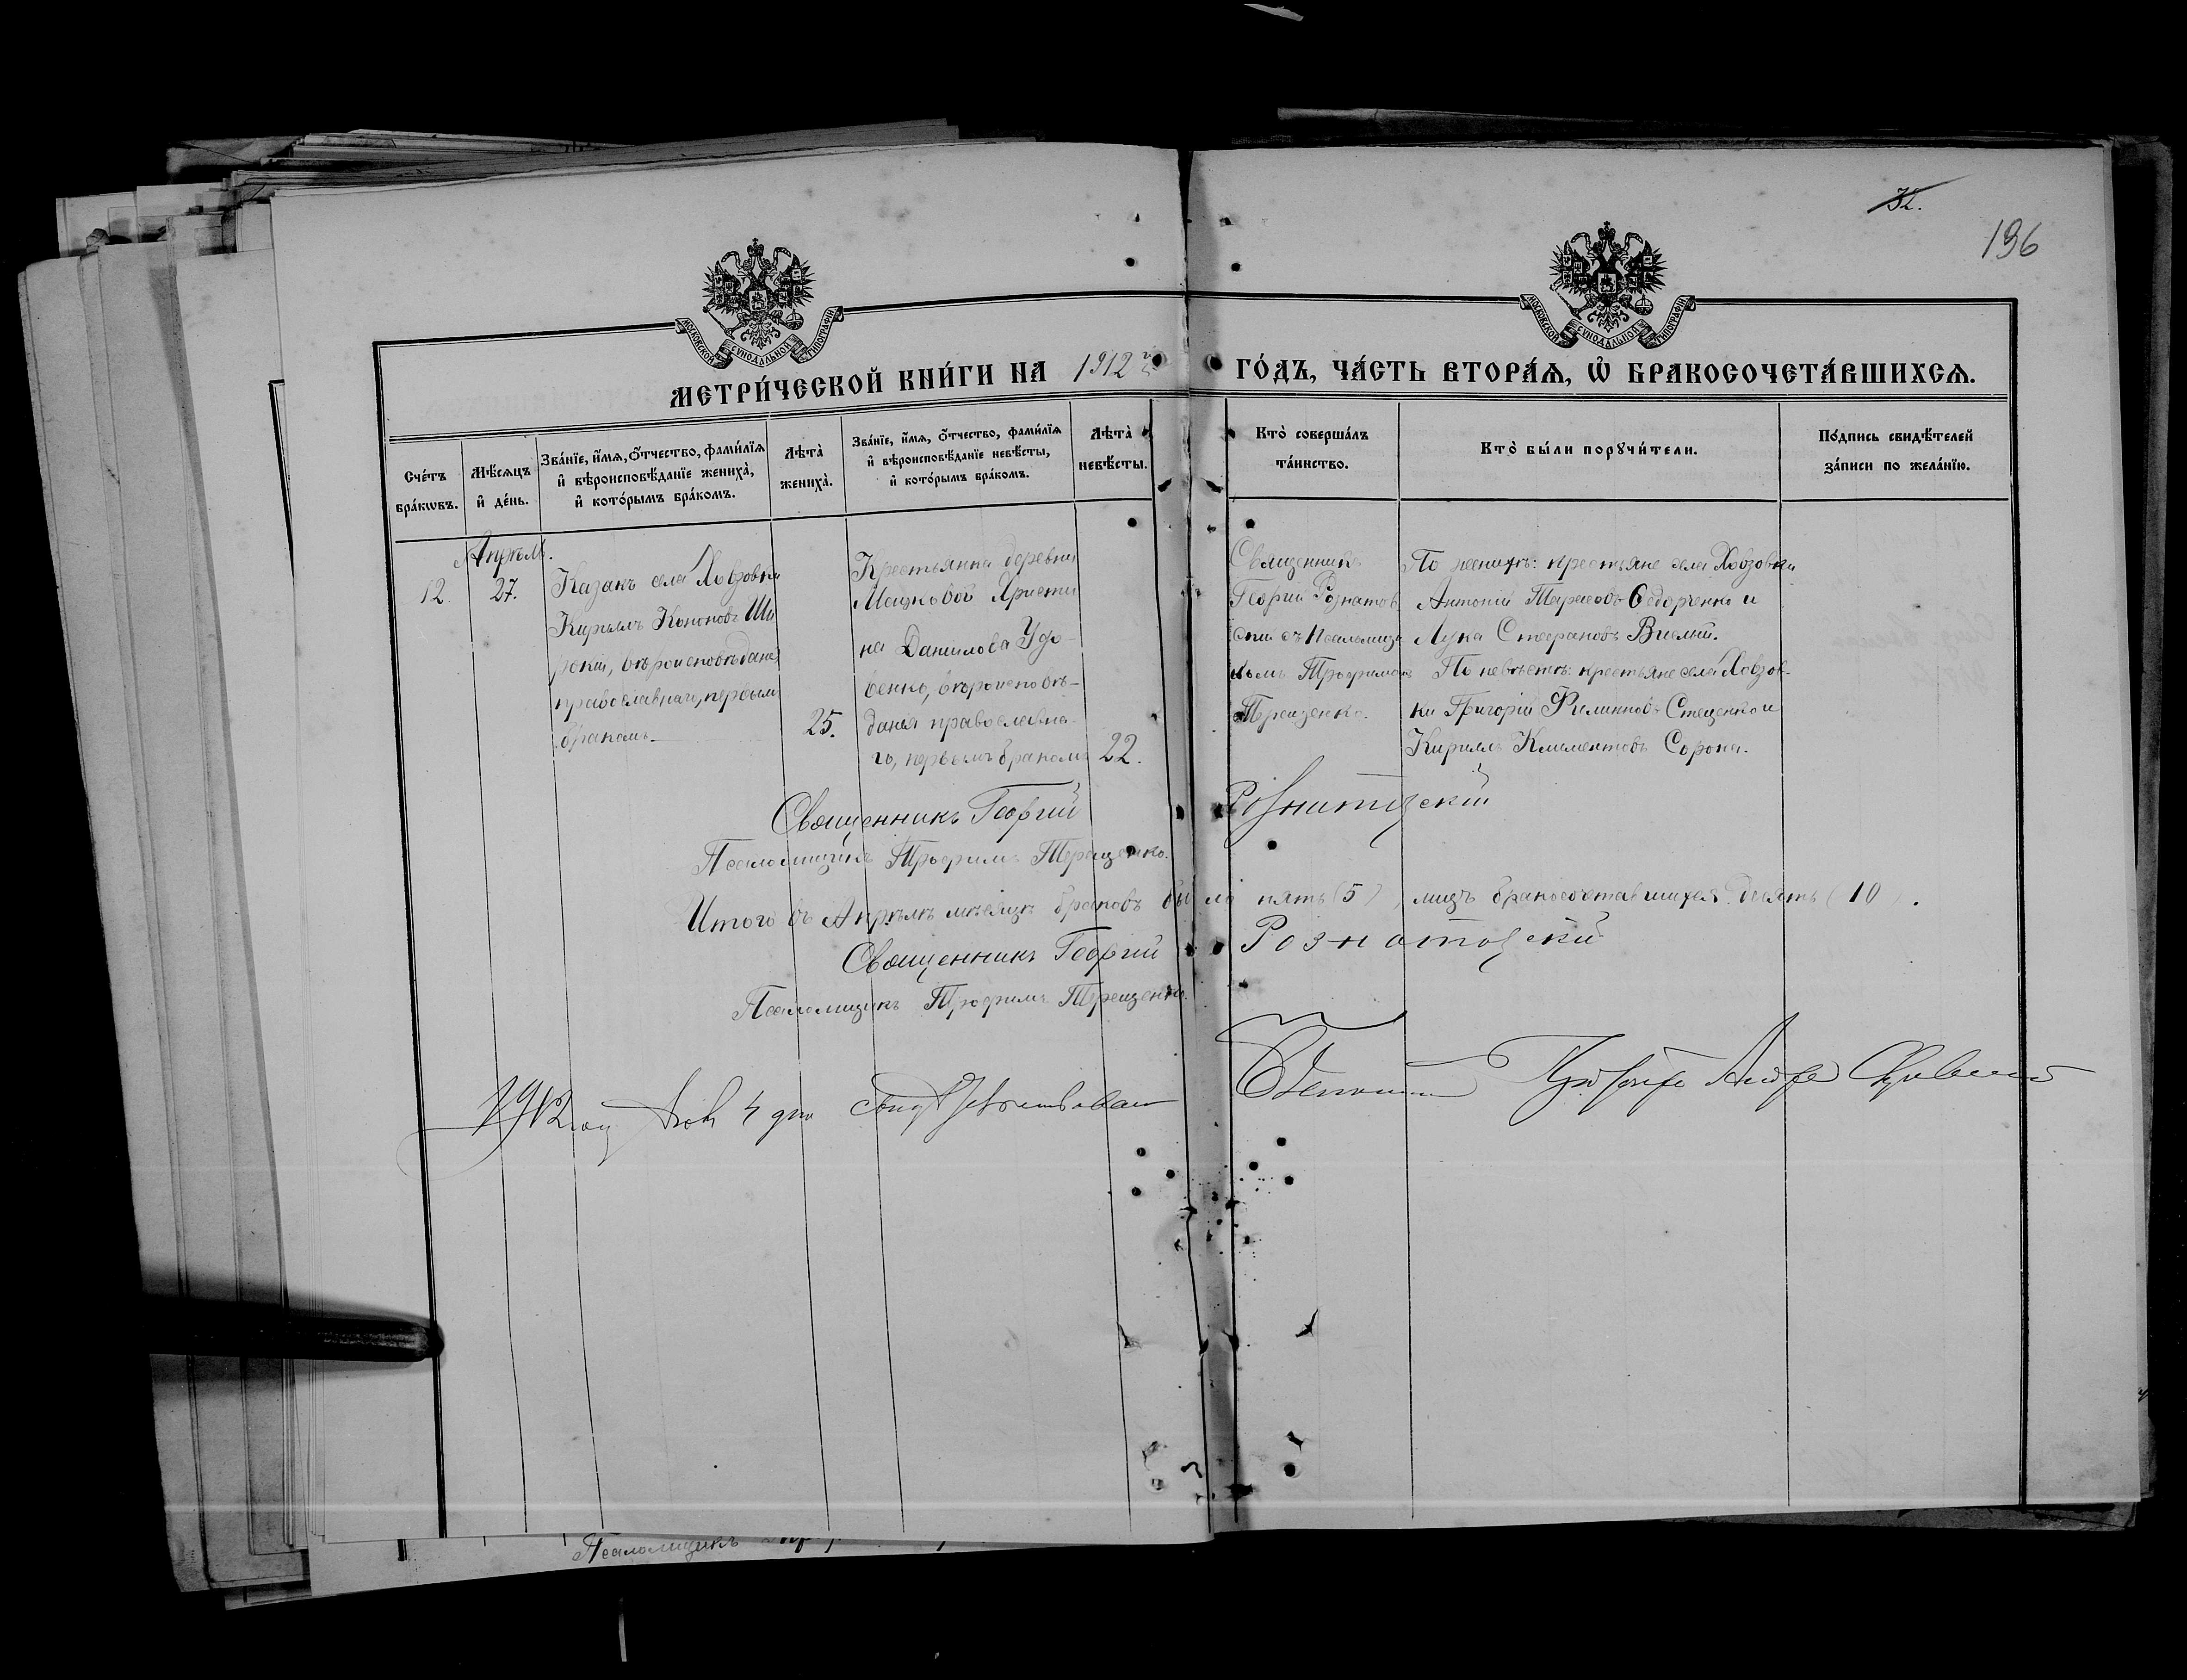 32.
196
МОСКОВСКОЙ СѴНОДАЛЬНОЙ ТИПОГРАФІИ
МОСКОВСКОЙ СѴНОДАЛЬНОЙ ТИПОГРАФІИ
МЕТРИ́ЧЕСКОЙ КНИ́ГИ НА 1912 й ГО́ДЪ, ЧА́СТЬ ВТОРА́Я, Ѡ БРАКОСОЧЕТА́ВШИХСЯ.
Сче́тъ
бра́кѡвъ.
Мѣ́сяцъ
и҆ де́нь.
Зва́нїе, и҆́мя, ѻ҆́тчество, фами́лїя
и҆ вѣроисповѣ́данїе жениха̀,
и҆ кото́рымъ бра́комъ.
Лѣта̀
жениха̀.
Зва́нїе, и҆́мя, ѻ҆́тчество, фами́лїя
и҆ вѣроисповѣ́данїе невѣ́сты,
и҆ кото́рымъ бра́комъ.
Лѣта̀
невѣ́сты.
Кто̀ соверша́лъ
та́инство.
Кто̀ бы́ли порꙋчи́тели.
По́дпись свидѣ́телей
за́писи по жела́нїю.
Апрѣль.
12.
27.
Казакъ села Ховзовки
Кириллъ Кононовъ Ши
рокій, вѣроисповѣданія
православнаго, первым
бракомъ.
25.
Крестьянка деревни
Мацковой Христи
на Данилова Удо-
венко, вѣроисповѣ-
данія православна-
го, первымъ бракомъ
22.
Священникъ
Георгій Рознатов
скій съ псаломщи
комъ Трофимомъ
Терещенко.
По женихѣ: крестьяне села Ховзовки
Антоній Тарасовъ Сидорченко и
Лука Стефановъ
По невѣстѣ: крестьяне села Ховзов-
ки Григорій Филипповъ Стеценко и
Кириллъ Климентовъ Сорока.
Священникъ Георгій Рознатовскій
Псаломщикъ Трофимъ Терещенко.
Итого въ Апрѣлѣ мѣсяцѣ браковъ было пять (5), лицъ бракосочетавшихся десять (10).
Священникъ Георгій Рознатовскій
Псаломщикъ Трофимъ Терещенко.
1912 год 4 дня свидѣтельствовал
Псаломщикъ